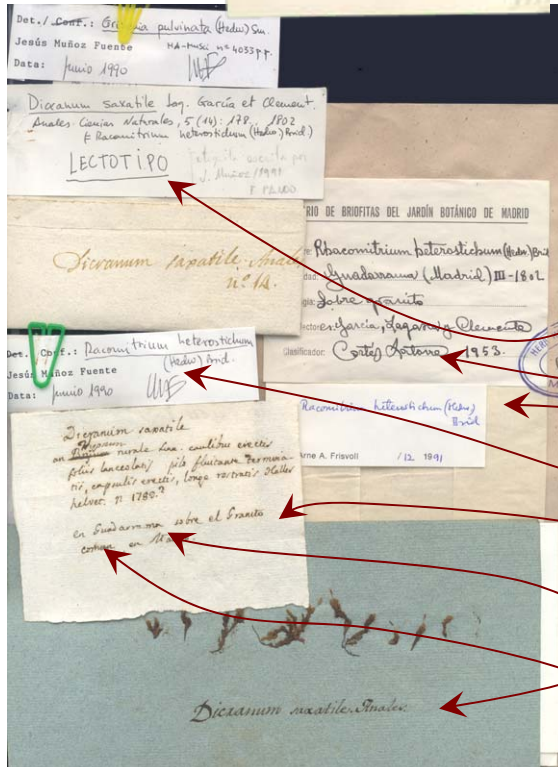 Det./Conf.: Grimmia pulvinata (Hedw) Sm.
Jesús Muñoz Fuente
MA-Musci nº 4033 p.p.
Data: junio 1990
Dicranum saxatile Lag. García et Clement.
Anales Ciencias Naturales, 5 (14): 178... 1802
(= Racomitrium heterostichum (Hedw) Brid.)
LECTOTIPO
etiqueta escrita por
J. Muñoz / 1991
Dicranum saxatile Anale
nº 14.
RIO DE BRIOFITAS DEL JARDÍN BOTÁNICO DE MADRID
Rhacomitrium heterostichum (Hedw.) Brid
Guadarrama (Madrid) III-1802
Sobre granito
García, Lagasca y Clemente
Clasificador: Cortés Latorre 1953.
Det./Conf.: Racomitrium heterostichum
(Hedw) Brid.
Jesús Muñoz Fuente
Data: junio 1990
Racomitrium heterostichum (Hedw)
Brid
Arne A. Frisvoll /12 1991
Dicranum saxatile
an rurale Lin. caulibus erectis
foliis lanceolatis pilo fluitante termina-
tis, capsulis erectis, longe rostratis Haller
helvet. n 1789?
en Guadarrama sobre el Granito
comun en
Dicranum saxatile. Anales.